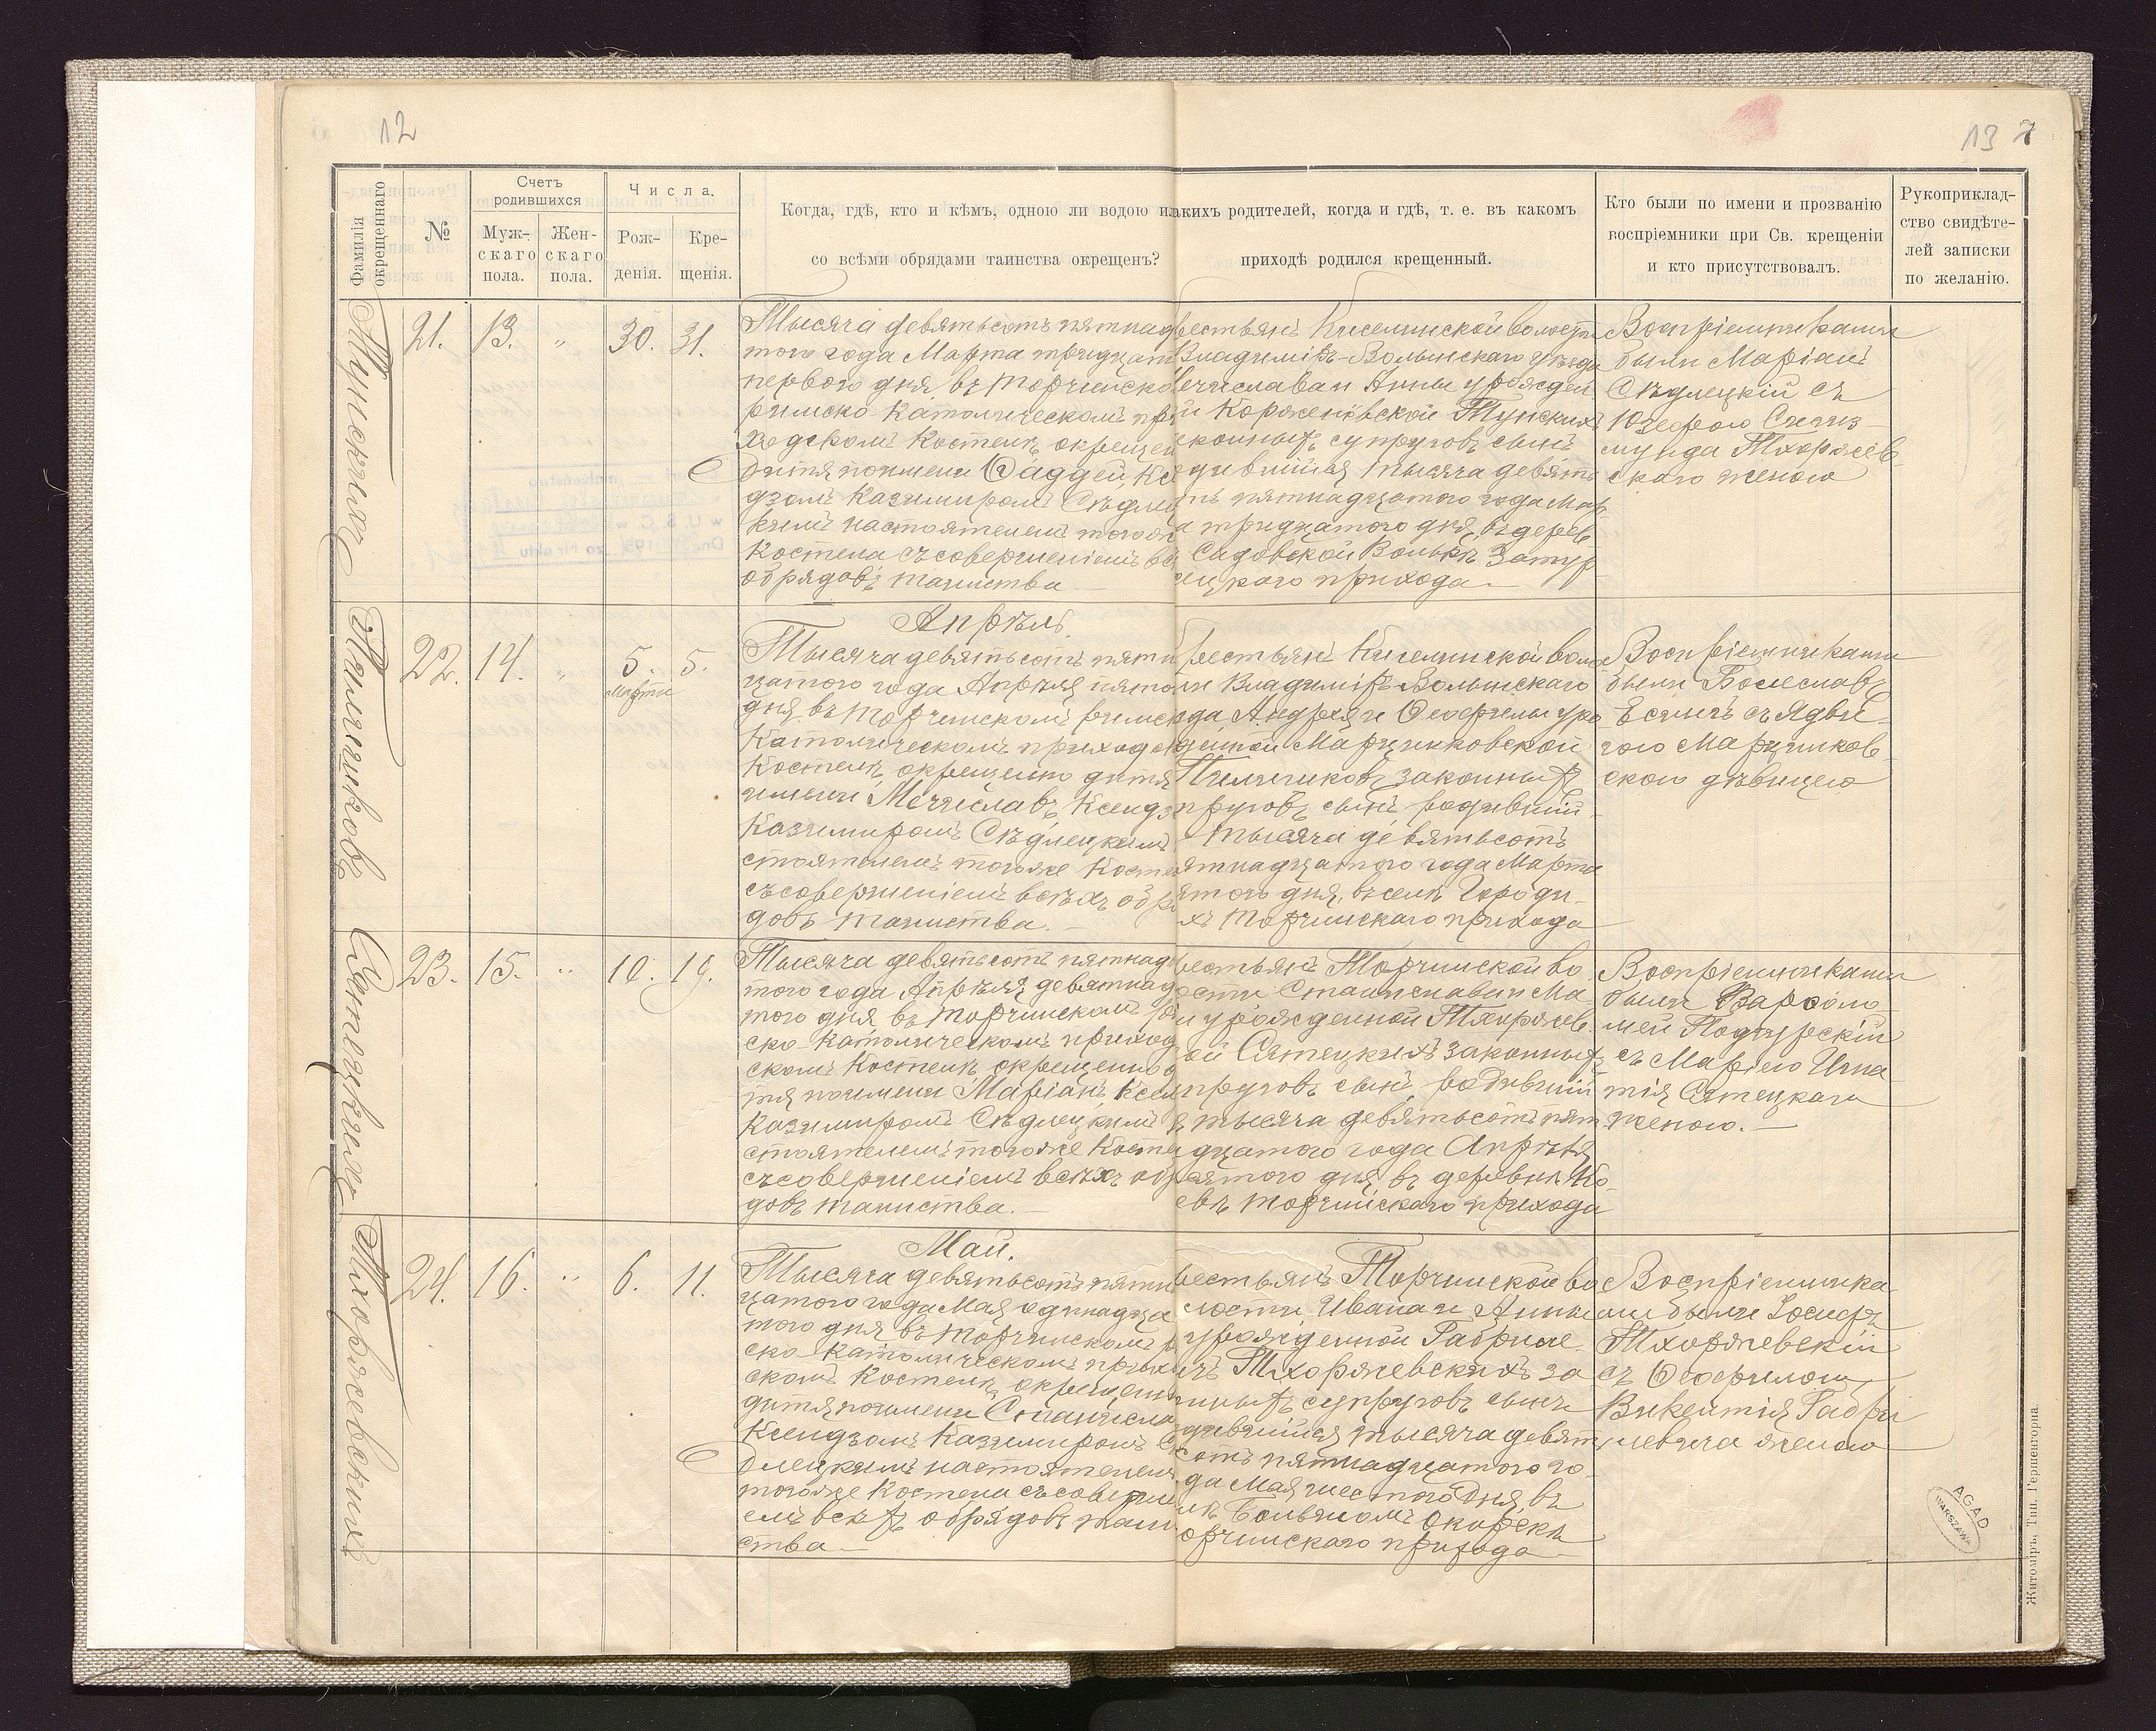 12
13 7
Фамилія окрещеннаго
№
Счетъ родившихся
Мужскаго пола.
Женскаго пола.
Числа.
Рожденія.
Крещенія.
Когда, гдѣ, кто и кѣмъ, одною ли водою и
со всѣми обрядами таинства окрещенъ?
акихъ родителей, когда и гдѣ, т. е. въ какомъ
приходѣ родился крещенный.
Кто были по имени и прозванію
воспріемники при Св. крещеніи
и кто присутствовалъ.
Рукоприклад-
ство свидѣте-
лей записки
по желанію.
Тунскихъ
21. 13. „ 30. 31.
Тысяча девятьсотъ пятнад
того года Марта тридцать
перваго дня, въ Торчинско
римско-католическомъ при
ходскомъ Костелѣ окрещен
дитя по имени Ѳаддей, Ксе
дзомъ Казимиромъ Сѣдлец
кимъ настоятелемъ тогоже
Костела съ совершеніемъ всѣ
обрядовъ таинства
рестьянъ Киселинской волости
Владиміръ-Волынскаго уѣзда
ечислава и Анны урожден
й Корженёвской Тунскихъ
конныхъ супруговъ сынъ
дившійся тысяча девять
тъ пятнадцатого года Мар
а тридцатого дня, въ дерев
Садовской Волькѣ Затур
ецкого прихода
Воспріемниками
были Маріанъ
Сѣдлецкій съ
Юзефою Сигиз-
мунда Тхоржев-
скаго женою
Пилипиковъ
22. 14. „ 5. Марта 5.
Апрѣль.
Тысяча девятьсотъ пятн
цатого года Апрѣля пято
дня, въ Торчинскомъ римск
католическомъ приходск
Костелѣ, окрещено дитя
имени Мечиславъ, Ксендз
Казимиромъ Сѣдлецкимъ
стоятелемъ тогоже Косте
съ совершеніемъ всѣхъ обр
довъ таинства.
рестьянъ Киселинской воло
и Владиміръ-Волынскаго
да Андрея и Ѳеофилы уро
денной Марцинковской
Пилипиковъ законныхъ
пруговъ сынъ, родивший-
тысяча девятьсотъ
ятнадцатого года Марта
ятого дня, въ селѣ Городи-
хъ Торчинскаго прихода
Воспріемниками
были Болеславъ
съ Ядви-
гою Марцинков-
скою дѣвицею
Сятецкихъ
23. 15. „ 10. 19.
Тысяча девятьсотъ пятнад
того года Апрѣля девятнад
того дня въ Торчинскомъ ри
ско-католическомъ приход
скомъ Костелѣ окрещено д
тя по имени Маріанъ, Ксен
Казимиромъ Сѣдлецкимъ
стоятелемъ тогоже Косте
съ совершеніемъ всѣхъ обр
довъ таинства.
рестьянъ Торчинской во
ости Станислава и Ма
и урожденной Тхоржев
ой Сятецкихъ законныхъ
пруговъ сынъ, родивший
я тысяча девятьсотъ пят
дцатого года Апрѣля
сятого дня, въ деревнѣ Ко
евъ Торчинскаго прихода
Воспріемниками
были Варфоло
мей Подгурскій
съ Маріею Игна
тія Сятецкаго
женою.
Тхоржевскихъ
24. 16. „ 6. 11.
Май.
Тысяча девятьсотъ пятн
цатого года Мая одинадца
того дня въ Торчинскомъ р
ско-католическомъ прихо
скомъ Костелѣ, окрещено
дитя по имени Станисла
Ксендзомъ Казимиромъ С
длецкимъ настоятелем
тогоже Костела съ соверше
емъ всѣхъ обрядовъ таин
ства
рестьянъ Торчинской во
лости, Ивана и Анны
урожденной Габриле
ичъ Тхоржевскихъ за
нныхъ супруговъ сынъ
дившійся тысяча девят
сотъ пятнадцатого го
да Мая шестого дня, въ
лѣ Большомъ Окорскѣ
орчинскаго прихода
Воспріемника
ми были Іосифъ
Тхоржевскій
съ Ѳеофилою
Викентія Габри
левича женою
AGAD
WARSZAWA
Житоміръ, Тип. Гершенгорна.